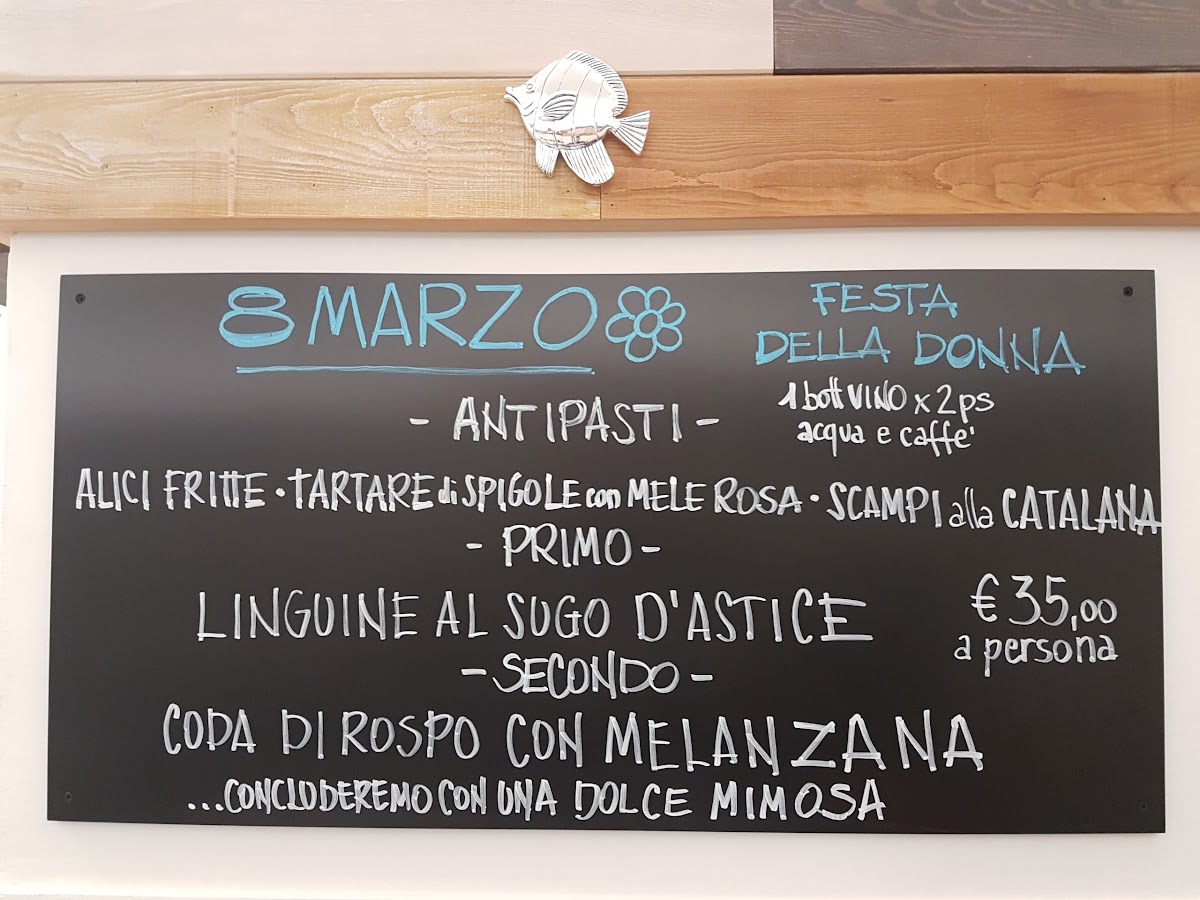 8 MARZO
FESTA
DELLA DONNA
1 bott VINO x 2ps
acqua e caffe'
- ANTIPASTI -
ALICI FRITTE · TARTARE di SPIGOLE con MELE ROSA · SCAMPI alla CATALANA
- PRIMO -
LINGUINE AL SUGO D'ASTICE
€ 35,00
a persona
- SECONDO -
CODA DI ROSPO CON MELANZANA
...CONCLUDEREMO CON UNA DOLCE MIMOSA